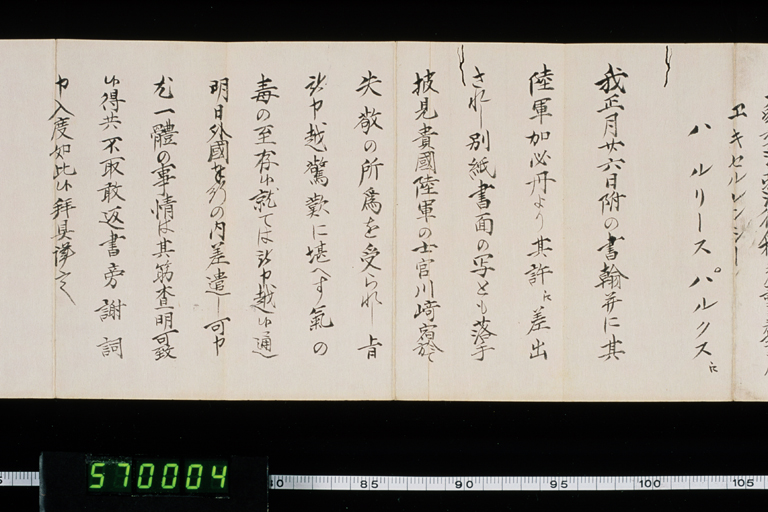 エキセルレンシー
ハルリースパルクスに
我正月廿六日附の書翰并に其
陸軍加必丹より其許に差出
され 別紙書面の写とも落手
披見貴國陸軍の士官川崎宿於て
失敬の所爲を受られし旨
被申越驚歎に堪へす氣の
毒の至存候就ては被申越候通
明日外國奉行の内差遣し可申
尤一體の事情は其筋査明可致
候得共不取敢返書旁謝詞
申入度如此候拝具謹言
570004
85 90 95 100 105